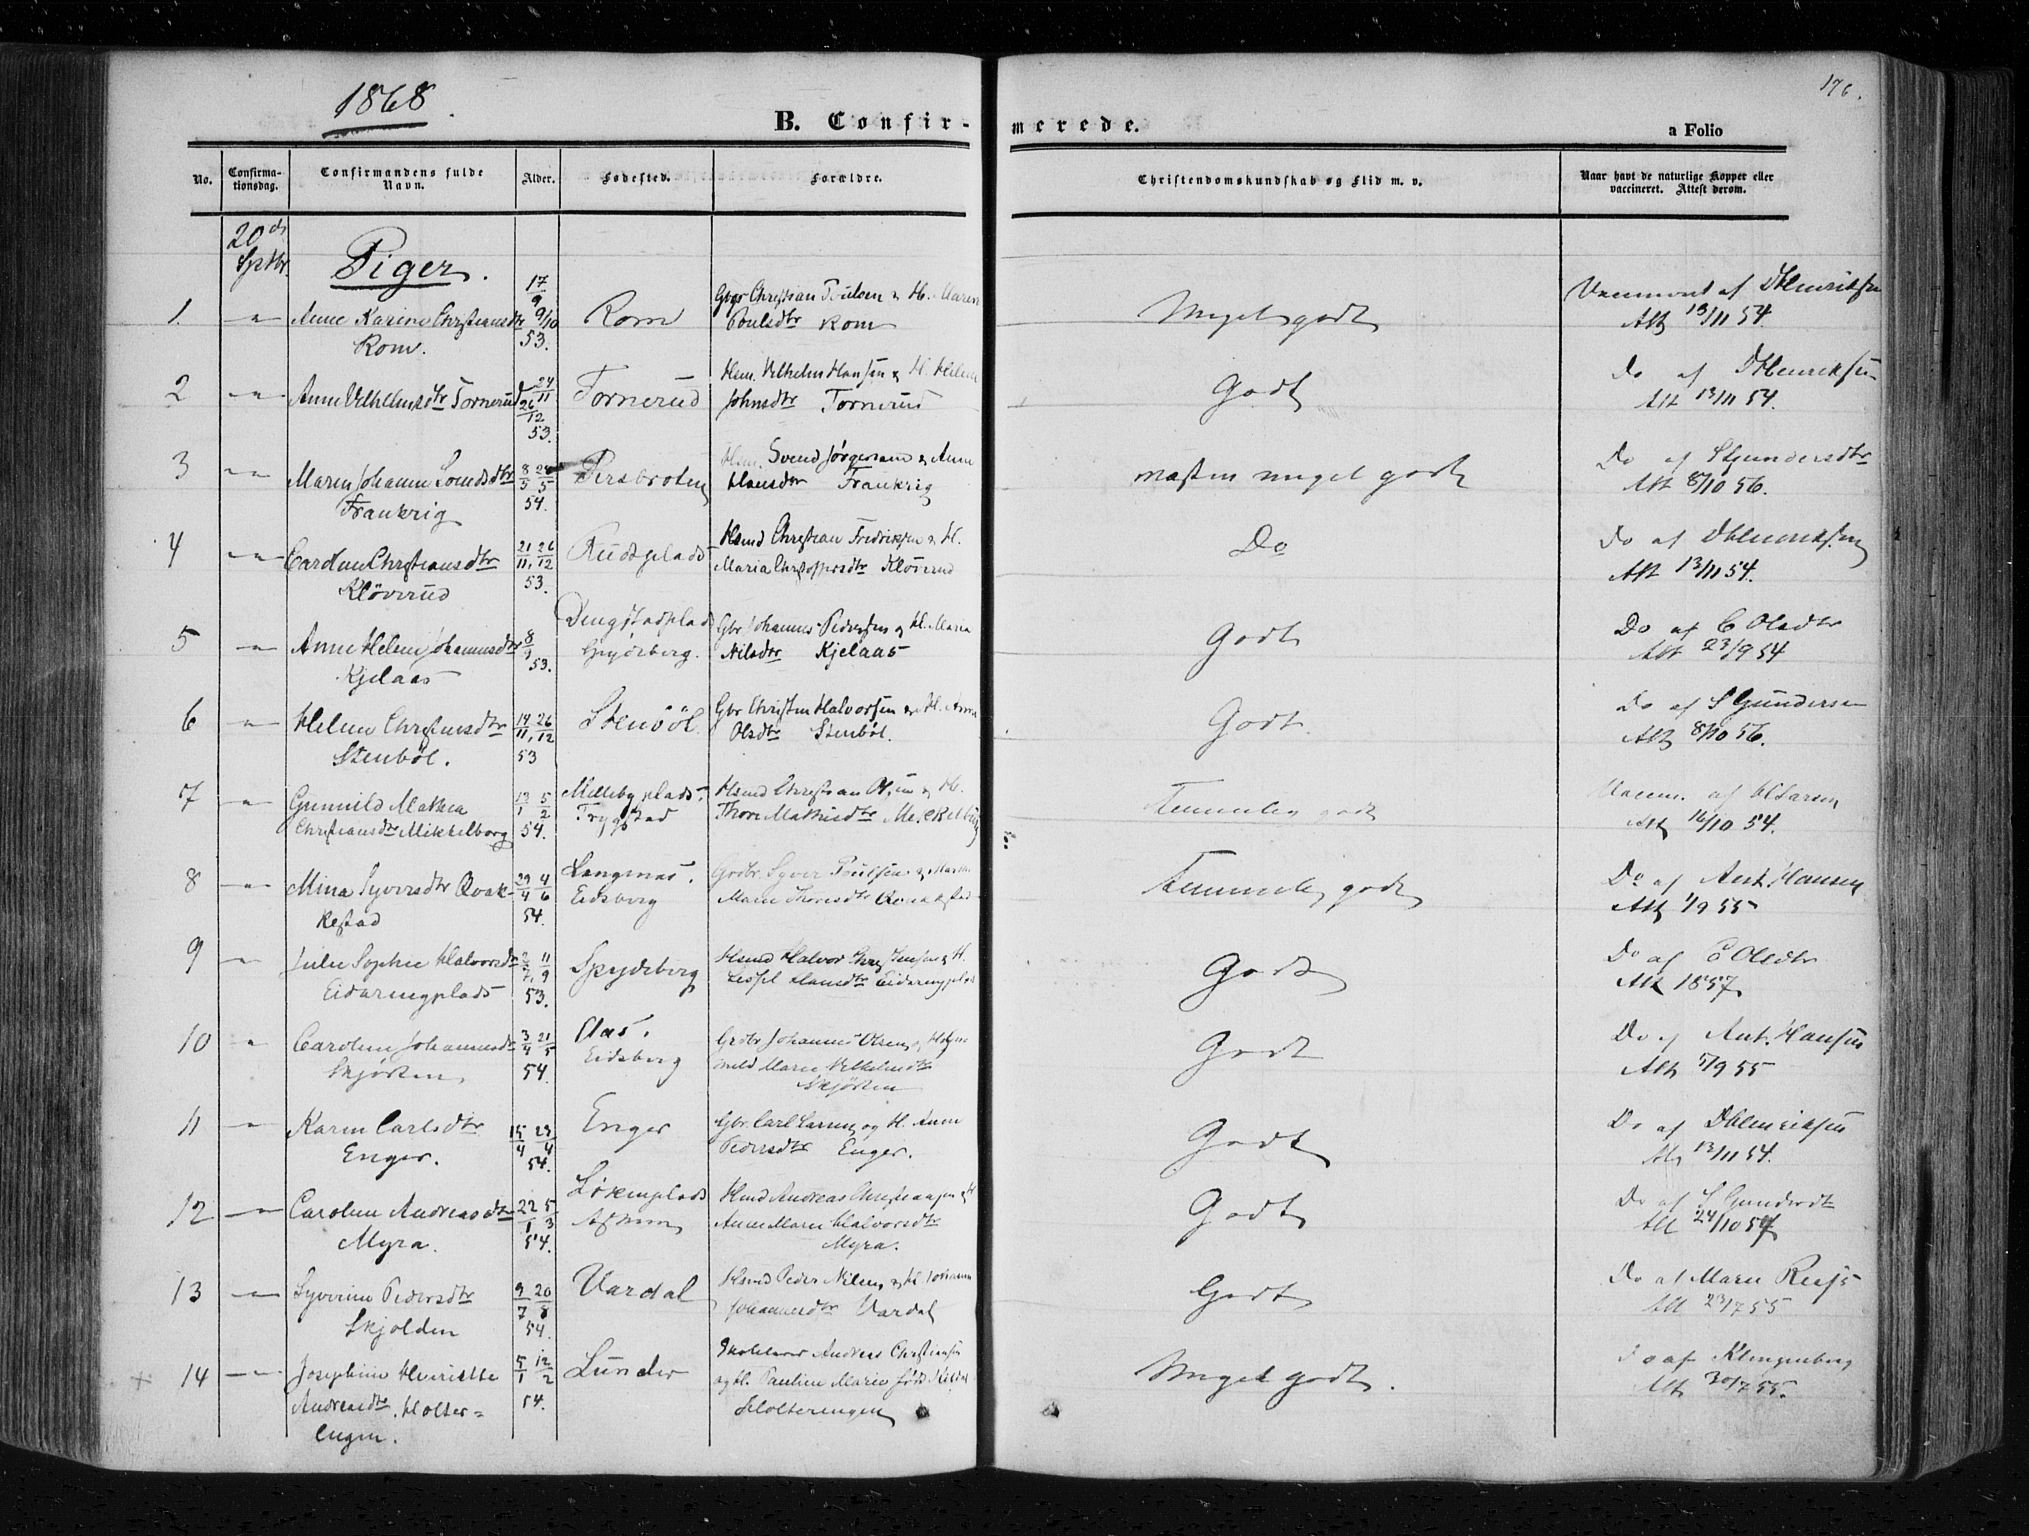 1868.
176.
B. Confir-merede.
a Folio
No.
Confirmationsdag.
Confirmandens fulde Navn.
Alder.
Fødested.
Forældre.
Christendomskundskab og Flid m. v.
Naar havt de naturlige Kopper eller vaccineret. Attest derom.
20de Septbr.
Piger.
1. -"- Anne Karine Christiansdtr 17/9 9/10 53. Rom Gbr Christian Poulsen & H. Maren Meget godt af DHenriksen
Rom. Poulsdtr Rom Att 13/11 54.
2 -"- Anne Vilhelmsdtr Tornerud 24/11 26/12 53. Tornerud Hsm. Vilhelm Hansen & H. Helene Godt Do af DHenriksen
Johnsdtr Tornerud Att 13/11 54.
3 -"- Maren Johanne Svendsdtr 8/5 54. Persbroten Hsm. Svend Jørgensen & Anne næsten meget godt Do af SGundersdtr
Frankrig Hansdtr Frankrig Att 8/10 56.
4 -"- Caroline Christiansdtr 21/11, 26/12 53. Rudsplads Hsmd Christian Fredriksen & H. Do Do af DHenriksen
Kløverud Maria Christophersdtr Kløverud Att 13/11 54.
5 -"- Anne Helene Johannesdtr 53. Gbr Johannes Pedersen og H. Maria Godt Do af C Olsdtr
Kjelaas Nilsdtr Kjelaas Att 23/9 54
6 -"- Helene Christensdtr 14/11, 26/12 53 Stenbøl. Gbr Christen Halvorsen & H. Anne Godt. Do af S Gundersen
Stenbøl. Olsdtr Stenbøl. Att 8/10 56.
7 -"- Gunnild Mathea 13/1 5/2 54. Melleby plads, Hsmd Christian Olsen & H. Temmelig godt Vaccin. af Larsen
Christiansdtr Mikkelborg Trygstad Thore Mathisdtr Att 16/10 54.
8 -"- Mina Syversdtr Qvak- 29/4 4/6 54. Langenæs. Grdbr. Syver Poulsen & Temmelig godt Do af Ant. Hansen
kestad Eidsberg Marie Thoresdtr Qvakkestad Att 1/9 55
9 -"- Julie Sophie Halvorsdtr 2/7, 11/9 53. Spydeberg Hsmd Halvor Jensen & H. Godt Do af C Olsdtr
Eidaringplads Hansdtr Eidaringplads Att 1857
10 " Caroline Johannesdtr 3/4 21/5 54. Aas. Grdbr Johannes Olsen og Godt Do af Ant. Hansen
Skjørten Eidsberg Marie Vilhelmsdtr Skjørten Att 5/9 55
11 -"- Karen Carlsdtr 15/4 23/4 54. Enger Gbr. Carl Larsen og H. Anne Godt Do af DHenriksen
Enger. Pedersdtr Enger. Att 13/11 54.
12 -"- Caroline Andreasdtr 22/1 5/3 54. Løkenplads Hsmd Andreas Christiansen & H Godt Do af S Gundersdtr
Myra. Askim Anne Marie Halvorsdtr Myra. Att 24/10 57
13 -"- Syverine Pedersdtr 9/7 20/8 54. Vardal Hsmd Peder Nilsen & H Johanne Godt Do af Marie
Skjolden Johannesdtr Vardal Att 23/7 55
14 -"- Josephine Henriette 5/1 12/2 54. Lunder Skolelærer Andreas Christiansen Meget godt. Do af Klingenberg
Andreasdtr. Holter= og H. Pauline Marie født Att 30/7 55.
engen. Holterengen